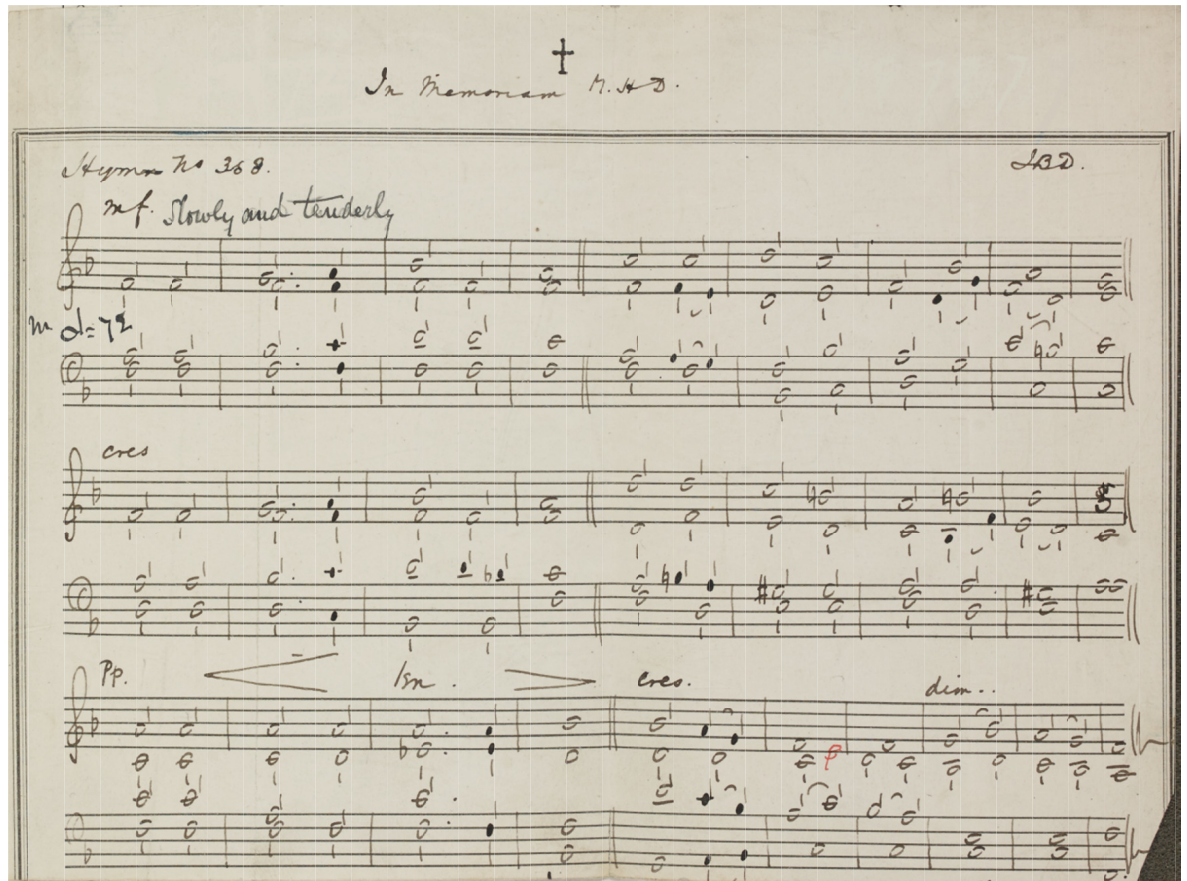 In Memoriam M.H.D.
Hymn No 368. JBD.
mf. Slowly and tenderly
=72
cres
pp. cres. dim..
p